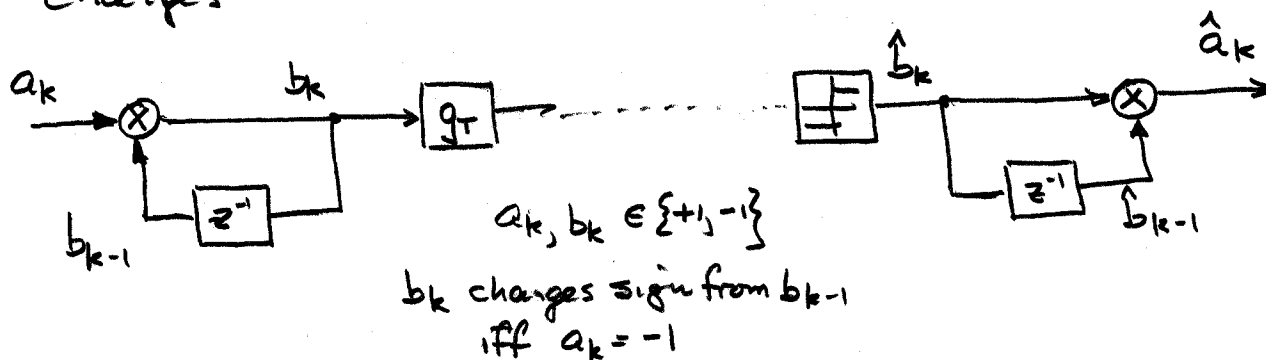 changes
a_k
b_k
g_T
b̂_k
â_k
z⁻¹
b_{k-1}
z⁻¹
b̂_{k-1}
a_k, b_k ∈ {+1, -1}
b_k changes sign from b_{k-1}
iff a_k = -1